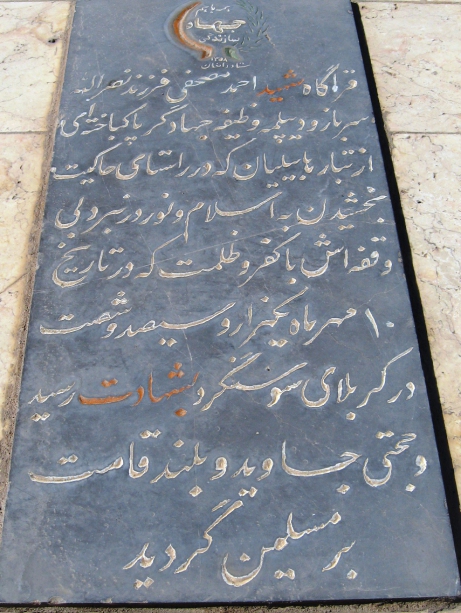 همه با هم
جهاد
سازندگی
۱۳۵۸
قرارگاه شهید احمد مصحفی فرزند نصراله
سرباز و دیپلمه وظیفه جهادگر پاکباخته‌ای
از تبار هابیلیان که در راستای حاکمیت
بخشیدن به اسلام و نور و در نبرد بی
وقفه‌اش با کفر و ظلمت که در تاریخ
۱۰ مهرماه یکهزار و سیصد و شصت
در کربلای سوسنگرد بشهادت رسید
و حجتی جاوید و بلند قامت
بر مسلمین گردید